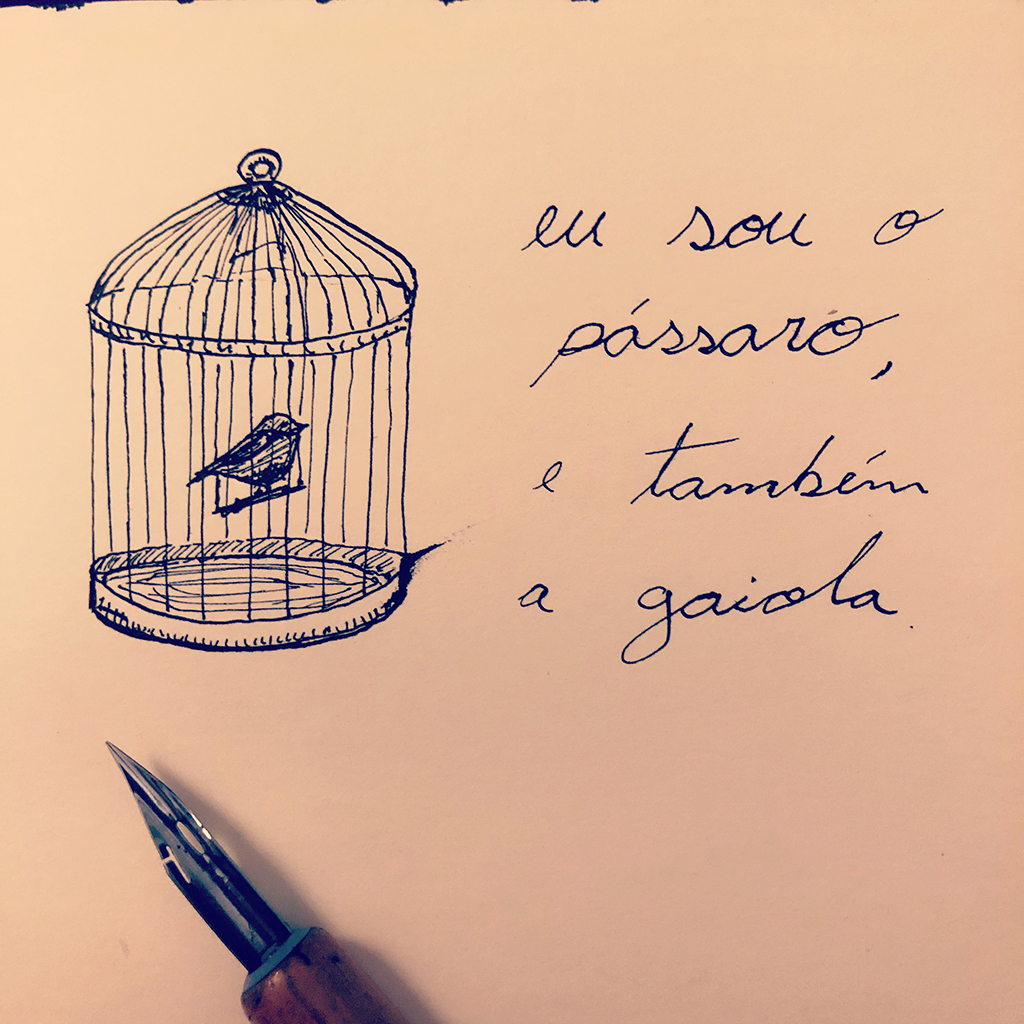 eu sou o
pássaro,
e também
a gaiola.